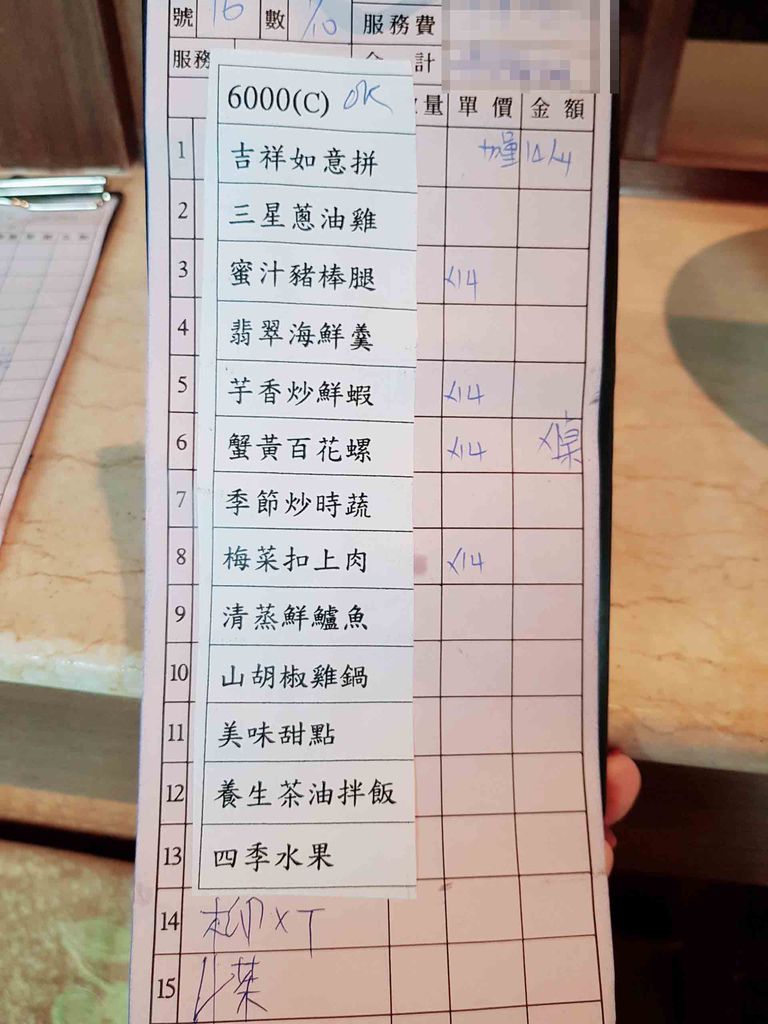 號 16 數 1/10 服務費
服務 計
6000(C) OK 量 單價 金額
1 吉祥如意拼 加量 14人
2 三星蔥油雞
3 蜜汁豬棒腿 X14
4 翡翠海鮮羹
5 芋香炒鮮蝦 X14
6 蟹黃百花螺 X14 X桌
7 季節炒時蔬
8 梅菜扣上肉 X14
9 清蒸鮮鱸魚
10 山胡椒雞鍋
11 美味甜點
12 養生茶油拌飯
13 四季水果
14 柳X
15